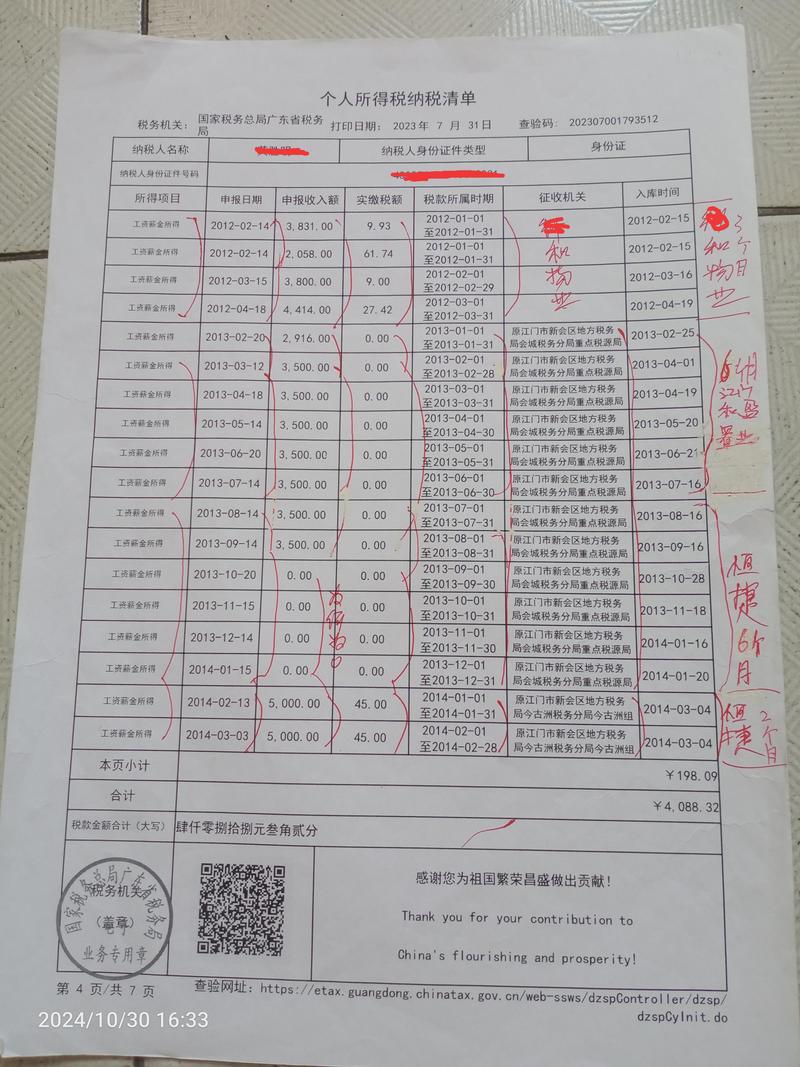 个人所得税纳税清单
税务机关： 国家税务总局广东省税务局 打印日期： 2023年 7 月 31日 查验码： 202307001793512
纳税人名称 纳税人身份证件类型 身份证
纳税人身份证件号码
所得项目 申报日期 申报收入额 实缴税额 税款所属时期 征收机关 入库时间
工资薪金所得 2012-02-14 3,831.00 9.93 2012-01-01至2012-01-31 2012-02-15
工资薪金所得 2012-02-14 2,058.00 61.74 2012-01-01至2012-01-31 和 2012-02-15
工资薪金所得 2012-03-15 3,800.00 9.00 2012-02-01至2012-02-29 物 2012-03-16
工资薪金所得 2012-04-18 4,414.00 27.42 2012-03-01至2012-03-31 业 2012-04-19
3个月
和物业
工资薪金所得 2013-02-20 2,916.00 0.00 2013-01-01至2013-01-31 原江门市新会区地方税务局会城税务分局重点税源局 2013-02-25
工资薪金所得 2013-03-12 3,500.00 0.00 2013-02-01至2013-02-28 原江门市新会区地方税务局会城税务分局重点税源局 2013-04-01
工资薪金所得 2013-04-18 3,500.00 0.00 2013-03-01至2013-03-31 原江门市新会区地方税务局会城税务分局重点税源局 2013-04-19
工资薪金所得 2013-05-14 3,500.00 0.00 2013-04-01至2013-04-30 原江门市新会区地方税务局会城税务分局重点税源局 2013-05-20
工资薪金所得 2013-06-20 3,500.00 0.00 2013-05-01至2013-05-31 原江门市新会区地方税务局会城税务分局重点税源局 2013-06-21
工资薪金所得 2013-07-14 3,500.00 0.00 2013-06-01至2013-06-30 原江门市新会区地方税务局会城税务分局重点税源局 2013-07-16
江门
置业
工资薪金所得 2013-08-14 3,500.00 0.00 2013-07-01至2013-07-31 原江门市新会区地方税务局会城税务分局重点税源局 2013-08-16
工资薪金所得 2013-09-14 3,500.00 0.00 2013-08-01至2013-08-31 原江门市新会区地方税务局会城税务分局重点税源局 2013-09-16
工资薪金所得 2013-10-20 0.00 0.00 2013-09-01至2013-09-30 原江门市新会区地方税务局会城税务分局重点税源局 2013-10-28
工资薪金所得 2013-11-15 0.00 0.00 2013-10-01至2013-10-31 原江门市新会区地方税务局会城税务分局重点税源局 2013-11-18
工资薪金所得 2013-12-14 0.00 0.00 2013-11-01至2013-11-30 原江门市新会区地方税务局会城税务分局重点税源局 2014-01-16
工资薪金所得 2014-01-15 0.00 0.00 2013-12-01至2013-12-31 原江门市新会区地方税务局会城税务分局重点税源局 2014-01-20
为何为0
恒捷6个月
工资薪金所得 2014-02-13 5,000.00 45.00 2014-01-01至2014-01-31 原江门市新会区地方税务局今古洲税务分局今古洲组 2014-03-04
工资薪金所得 2014-03-03 5,000.00 45.00 2014-02-01至2014-02-28 原江门市新会区地方税务局今古洲税务分局今古洲组 2014-03-04
恒捷2个月
本页小计 ￥198.09
合计 ￥4,088.32
税款金额合计（大写） 肆仟零捌拾捌元叁角贰分
税务机关
（盖章）
国家税务总局广东省税务局
电子
业务专用章
感谢您为祖国繁荣昌盛做出贡献！
Thank you for your contribution to
China's flourishing and prosperity!
第 4 页/共 7 页 查验网址：https://etax.guangdong.chinatax.gov.cn/web-ssws/dzspController/dzsp/
dzspCyInit.do
2024/10/30 16:33